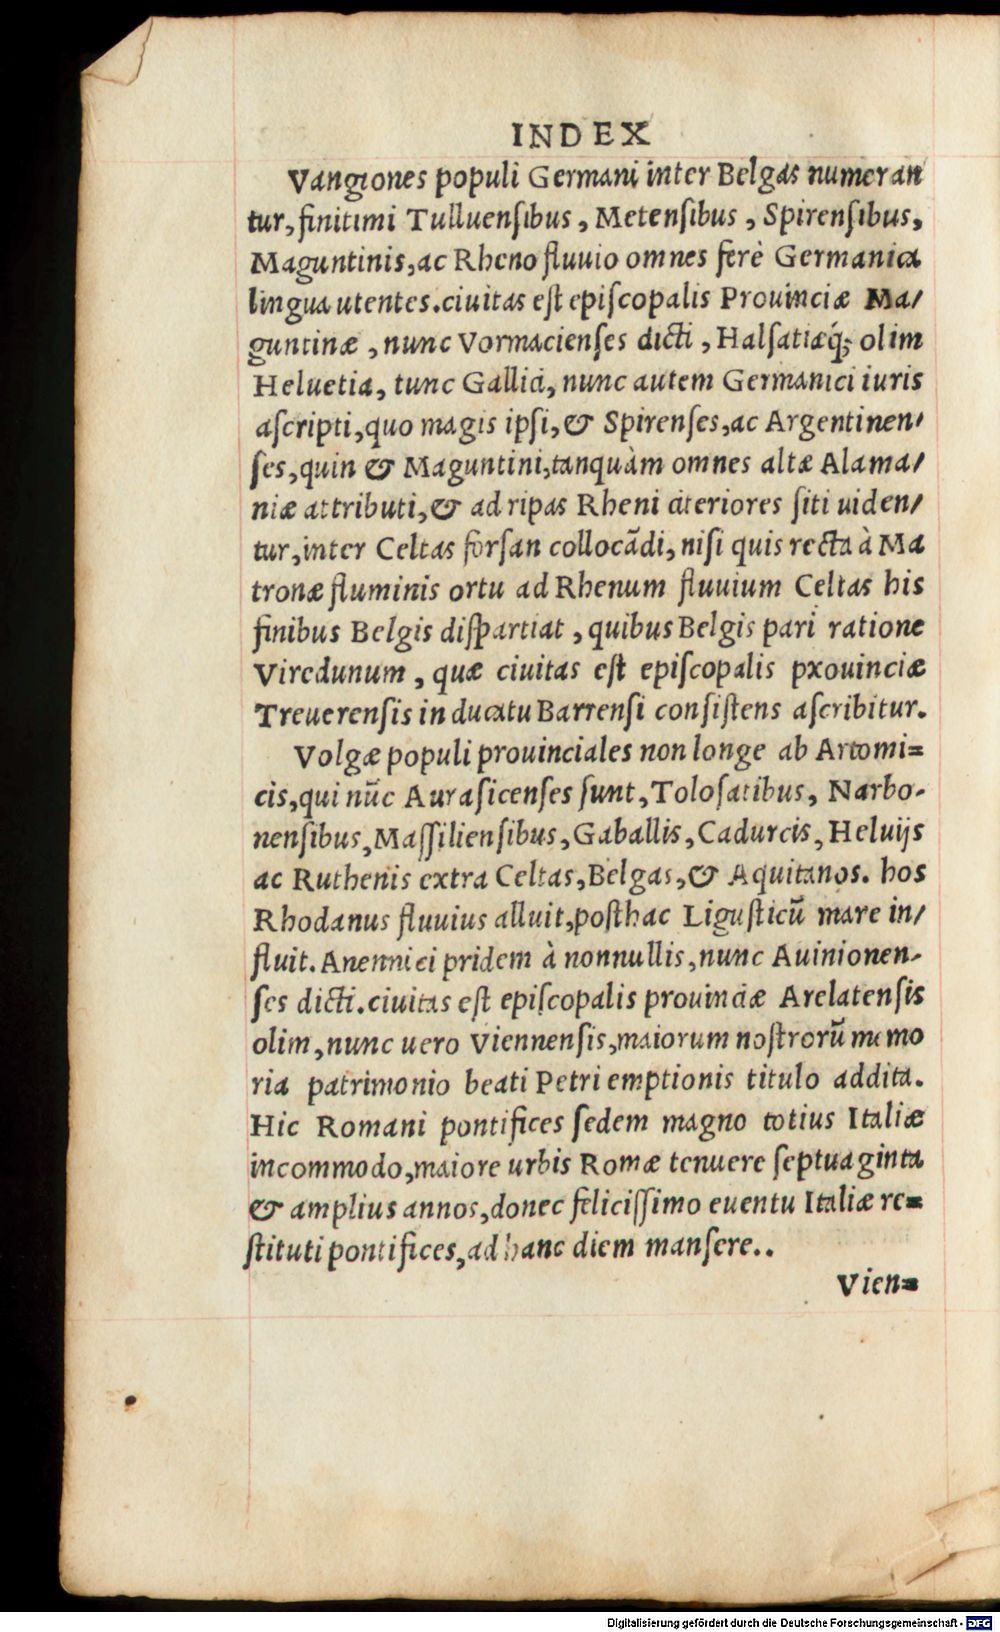 INDEX
Vangiones populi Germani inter Belgas numeran
tur, finitimi Tulluensibus, Metensibus, Spirensibus,
Maguntinis, ac Rheno fluuio omnes ferè Germanica
lingua utentes. ciuitas est episcopalis Prouinciæ Ma/
guntinæ, nunc Vormacienses dicti, Halsatiæq́; olim
Heluetia, tunc Gallici, nunc autem Germanici iuris
ascripti, quo magis ipsi, & Spirenses, ac Argentinen/
ses, quin & Maguntini, tanquàm omnes altæ Alama/
niæ attributi, & ad ripas Rheni citeriores siti uiden/
tur, inter Celtas forsan collocādi, nisi quis recta à Ma
tronæ fluminis ortu ad Rhenum fluuium Celtas his
finibus Belgis dispartiat, quibus Belgis pari ratione
Viredunum, quæ ciuitas est episcopalis pxouinciæ
Treuerensis in ducatu Barrensi consistens ascribitur.
Volgæ populi prouinciales non longe ab Artomi=
cis, qui nūc Aurasicenses sunt, Tolosatibus, Narbo-
nensibus, Massiliensibus, Gaballis, Cadurcis, Heluijs
ac Ruthenis extra Celtas, Belgas, & Aquitanos. hos
Rhodanus fluuius alluit, posthac Ligusticū mare in/
fluit. Anennici pridem à nonnullis, nunc Auinionen-
ses dicti. ciuitas est episcopalis prouinciæ Arelatensis
olim, nunc uero Viennensis, maiorum nostrorū memo
ria patrimonio beati Petri emptionis titulo addita.
Hic Romani pontifices sedem magno totius Italiæ
incommodo, maiore urbis Romæ tenuere septuaginta
& amplius annos, donec felicissimo euentu Italiæ re=
stituti pontifices, ad hanc diem mansere..
Vien=
Digitalisierung gefördert durch die Deutsche Forschungsgemeinschaft - DFG